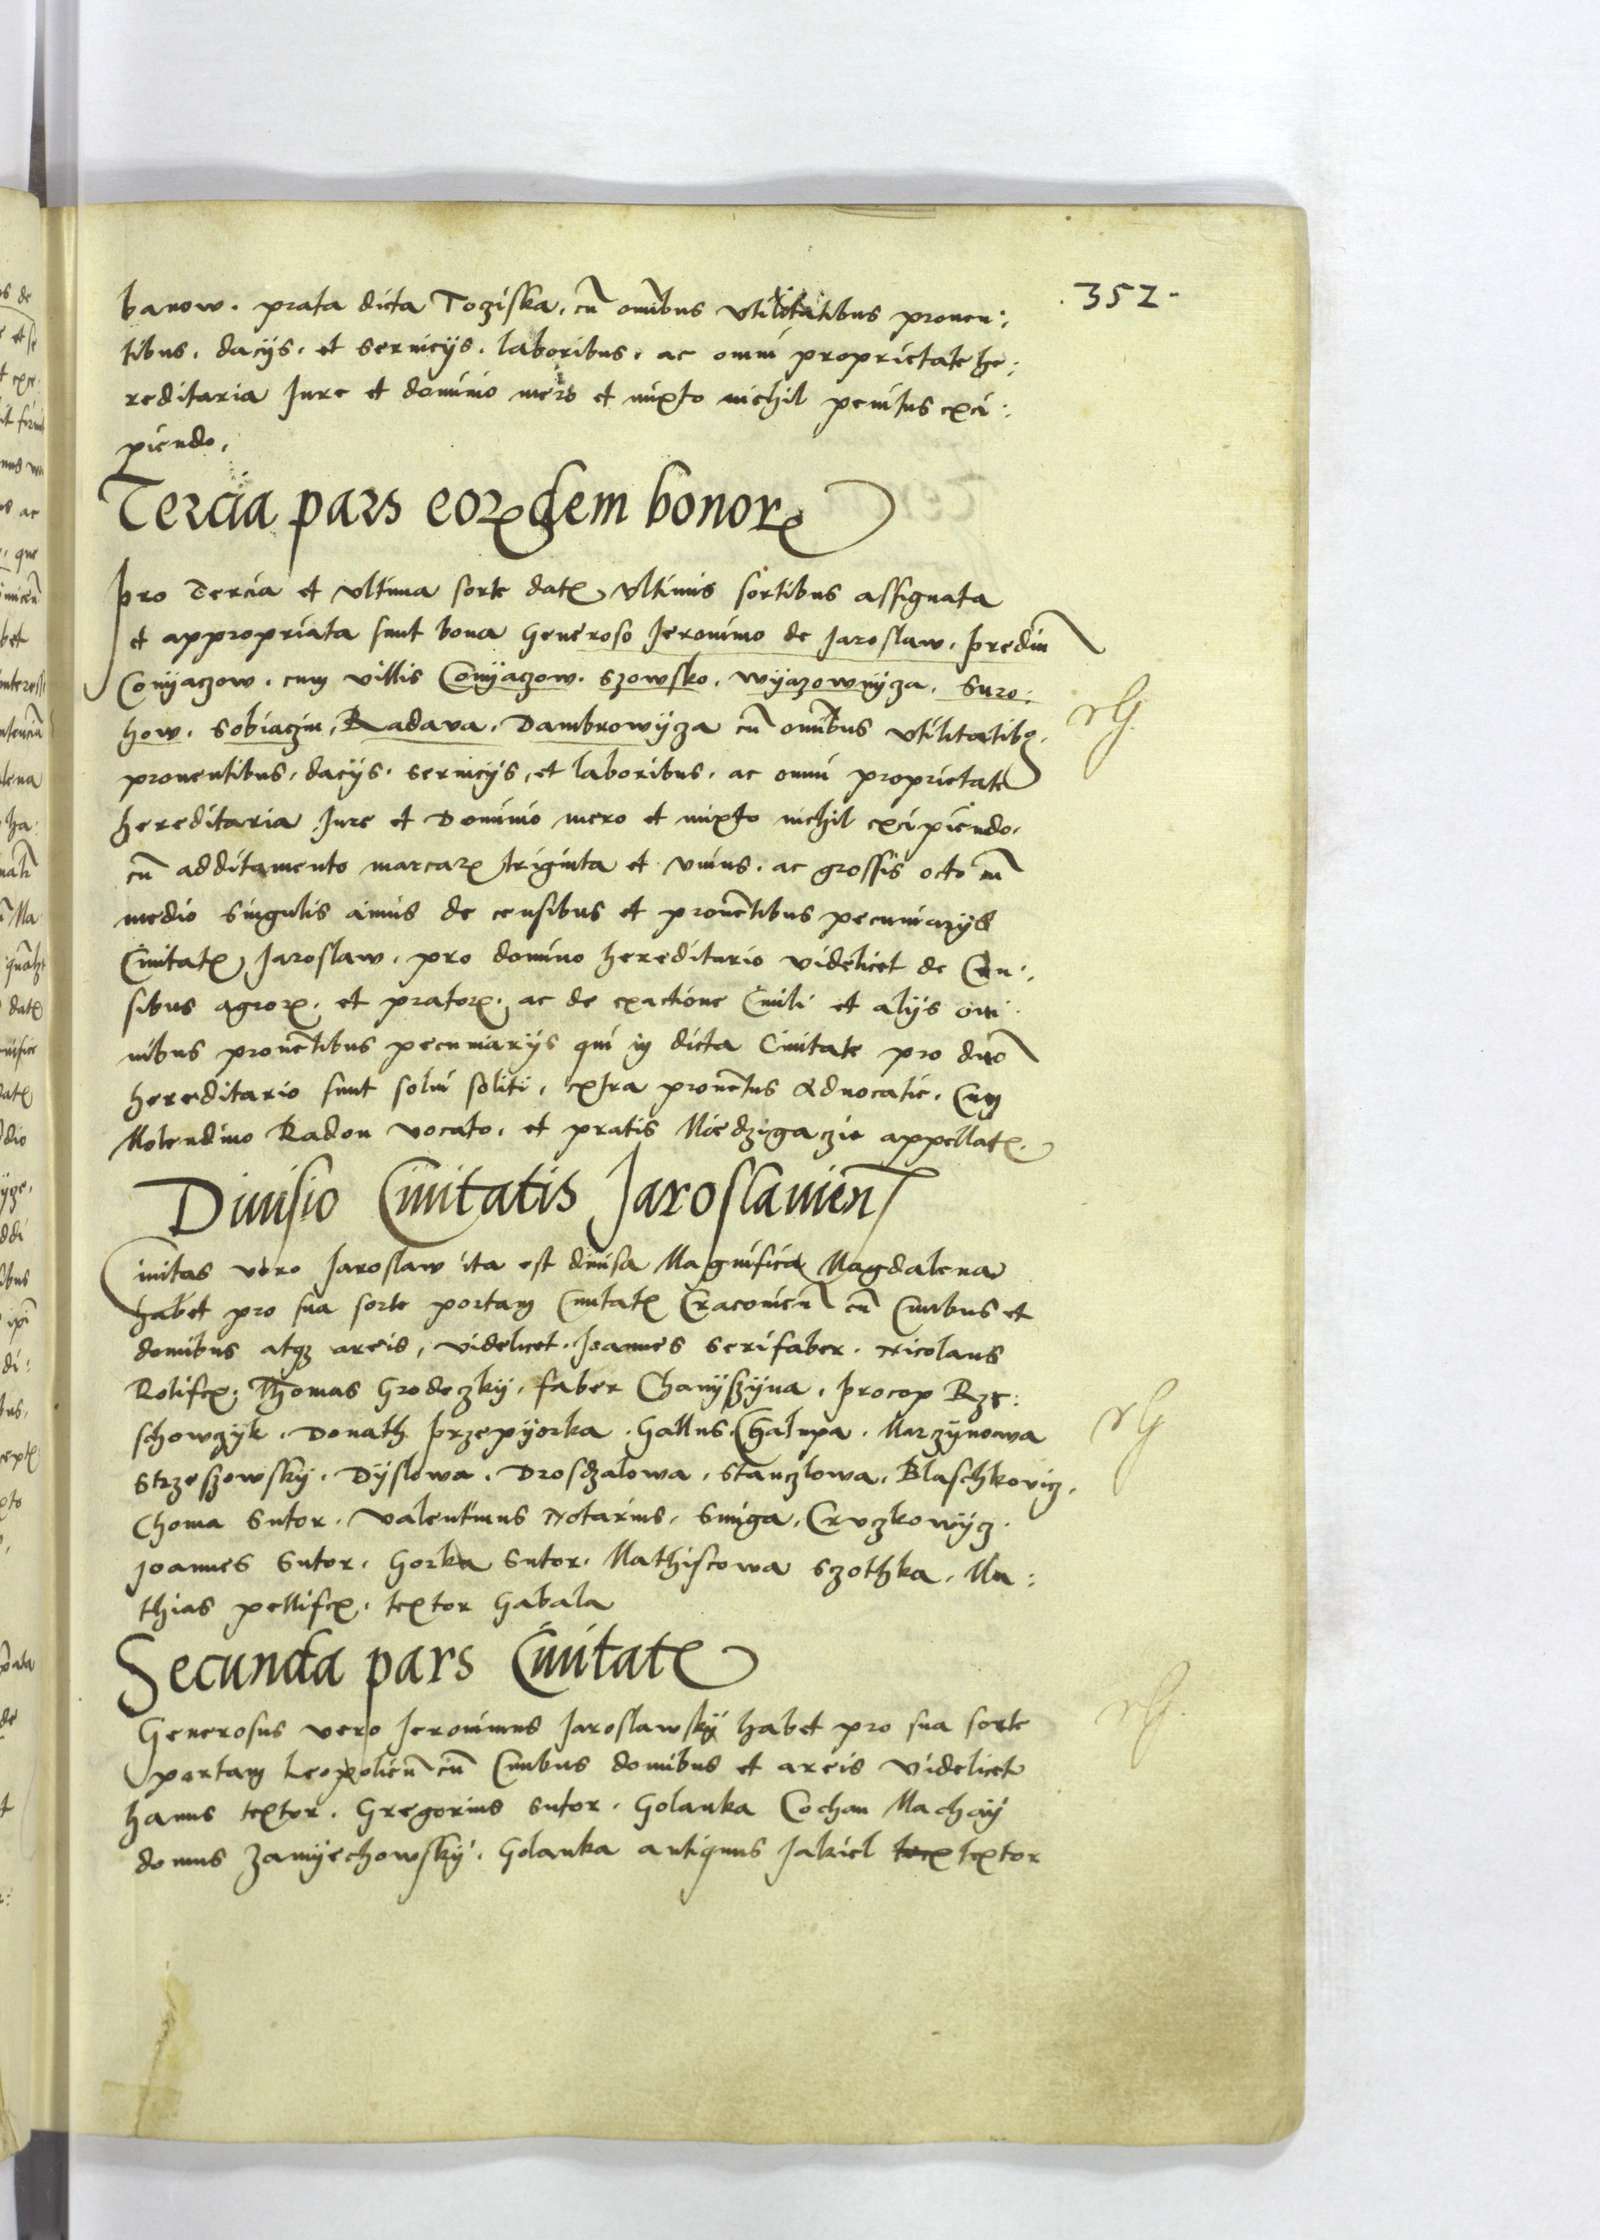 .352.
banow. prata dicta Toziska. cu̅ omi̅bus vtilitatibus prouen:
tibus. dacijs. et seruicijs. laboribus. ac omni proprietate he:
reditaria Jure et dominio mero et mixto nichil penitus exci:
piendo.
Tercia pars eorꝝdem bonorꝝ
Pro Tercia et vltima sorte datꝭ vltimis sortibus assignata
et appropriata sunt bona Generoso Jeronimo de Jaroslaw. prediu̅
Conijaczow. cum villis Conijaczow. Szowsko. Wijazownijcza. Suro:
how. Sobiaczin. Radava. Dambrowijcza cu̅ omi̅bus vtilitatibꝫ.
prouentibus. dacijs. seruicijs, et laboribus. ac omni proprietate
hereditaria Jure et Dominio mero et mixto nichil excipiendo.
cu̅ additamento marcarꝝ triginta et vnius. ac grossis octo cu̅
medio singulis annis de censibus et proue̅tibus pecuniarijs
Ciuitatꝭ Jaroslaw. pro domino hereditario videlicet de Cen:
sibus agrorꝝ. et pratorꝝ. ac de exactione Ciuili et alijs om:
nibus proue̅tibus pecuniarijs qui in dicta Ciuitate pro dno̅
hereditario sunt solui soliti. extra proue̅tus Aduocatie. Cum
Molendino Radon vocato. et pratis Miedzigaczie appellatꝭ.
Diuisio Ciuitatis Jaroslauien̅
Ciuitas vero Jaroslaw ita est diuisa Magnifica Magdalena
habet pro sua sorte portam Ciuitatꝭ Cracouien̅ cu̅ Ciuibus et
domibus atqꝫ areis, videlicet. Joannes serifaber. Nicolaus
Rotifex. Thomas Grodeczkij. faber Chanijszijna. Procop Rze:
schowczijk. Donath Przepijorka. Gallus Chalupa. Marczijnowa
Strzeszowskij. Dijslowa. Drosdzalowa. Stanczlowa. Blaschkovicz.
Choma Sutor. Valentinus Notarius. Smiga. Cruczkowijcz.
Joannes Sutor. Gorka Sutor. Mathiscowa Szothka. Ma:
thias pellifex. textor Gabala
Secunda pars Ciuitatꝭ
Generosus vero Jeronimus Jaroslawskij habet pro sua sorte
portam Leopolien̅ cu̅ Ciuibus domibus et areis videlicet
hanus textor. Gregorius Sutor. Golanka Cochan Machaij
domus Zamijechowskij. Golanka antiquus Jakiel textor